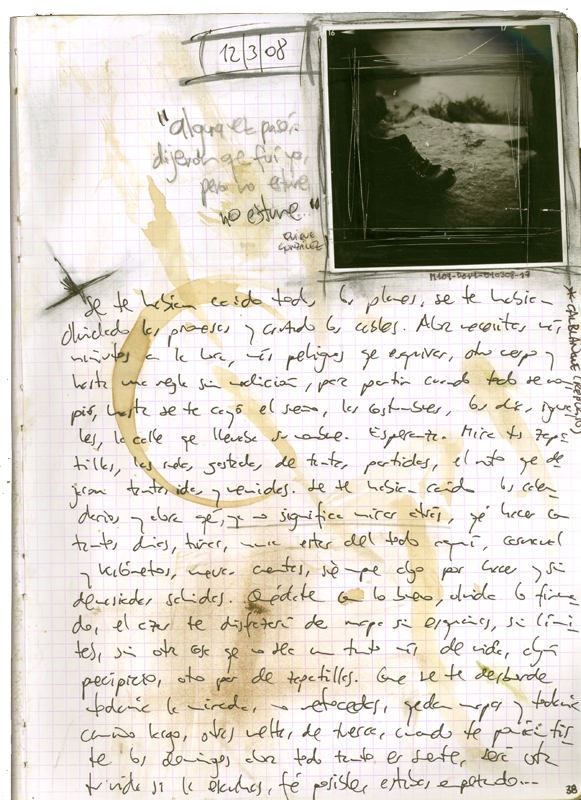 12|3|08
16
"alguna vez pasó,
dijeron que fui yo,
pero no estuve,
no estuve..."
QUIQUE
GONZÁLEZ
Se te habían caído todos los planes, se te habían
olvidado las promesas y cortado los cables. Ahora necesitas más
minutos en la hora, más peligros que esquivar, otro cuerpo y
hasta una regla sin maldición, para partir cuando todo se
pió, hasta se te cayó el sueño, las costumbres, los días igua
les, la calle que llevaba su nombre. Esperanza. Mira tus zapa
tillas, las suelas gastadas de tantas partidas, el roto que de
jaron tantas idas y venidas. Se te habían caído los calen
darios y ahora qué, ya no significa mirar atrás, qué hacer con
tantos días, tuercas, nunca estar del todo aquí, carnaval
y kilómetros, nuevas cuentas, siempre algo por hacer y sin
demasiadas salidas. Quédate con lo bueno, olvida lo firma
do, el azar te disfrazará de mapa sin esquinas, sin lími
tes, sin otra cosa que no sea un tanto más de vida, algún
precipicio, otro par de zapatillas. Que se te desborde
todavía la mirada, no retrocedas, quedan mapas y todavía
camino largo, otras vueltas de tuerca, cuando te
te los domingos ahora todo tanto es suerte, será otra
tu vida si la escuchas, fue posible, estabas empezando...
38